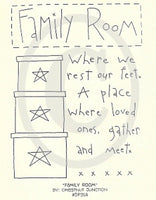 Family Room
Where we
rest our feet.
A place
where loved
ones, gather
and meet.
x x x x x
"FAMILY ROOM"
BY: CHESTNUT JUNCTION